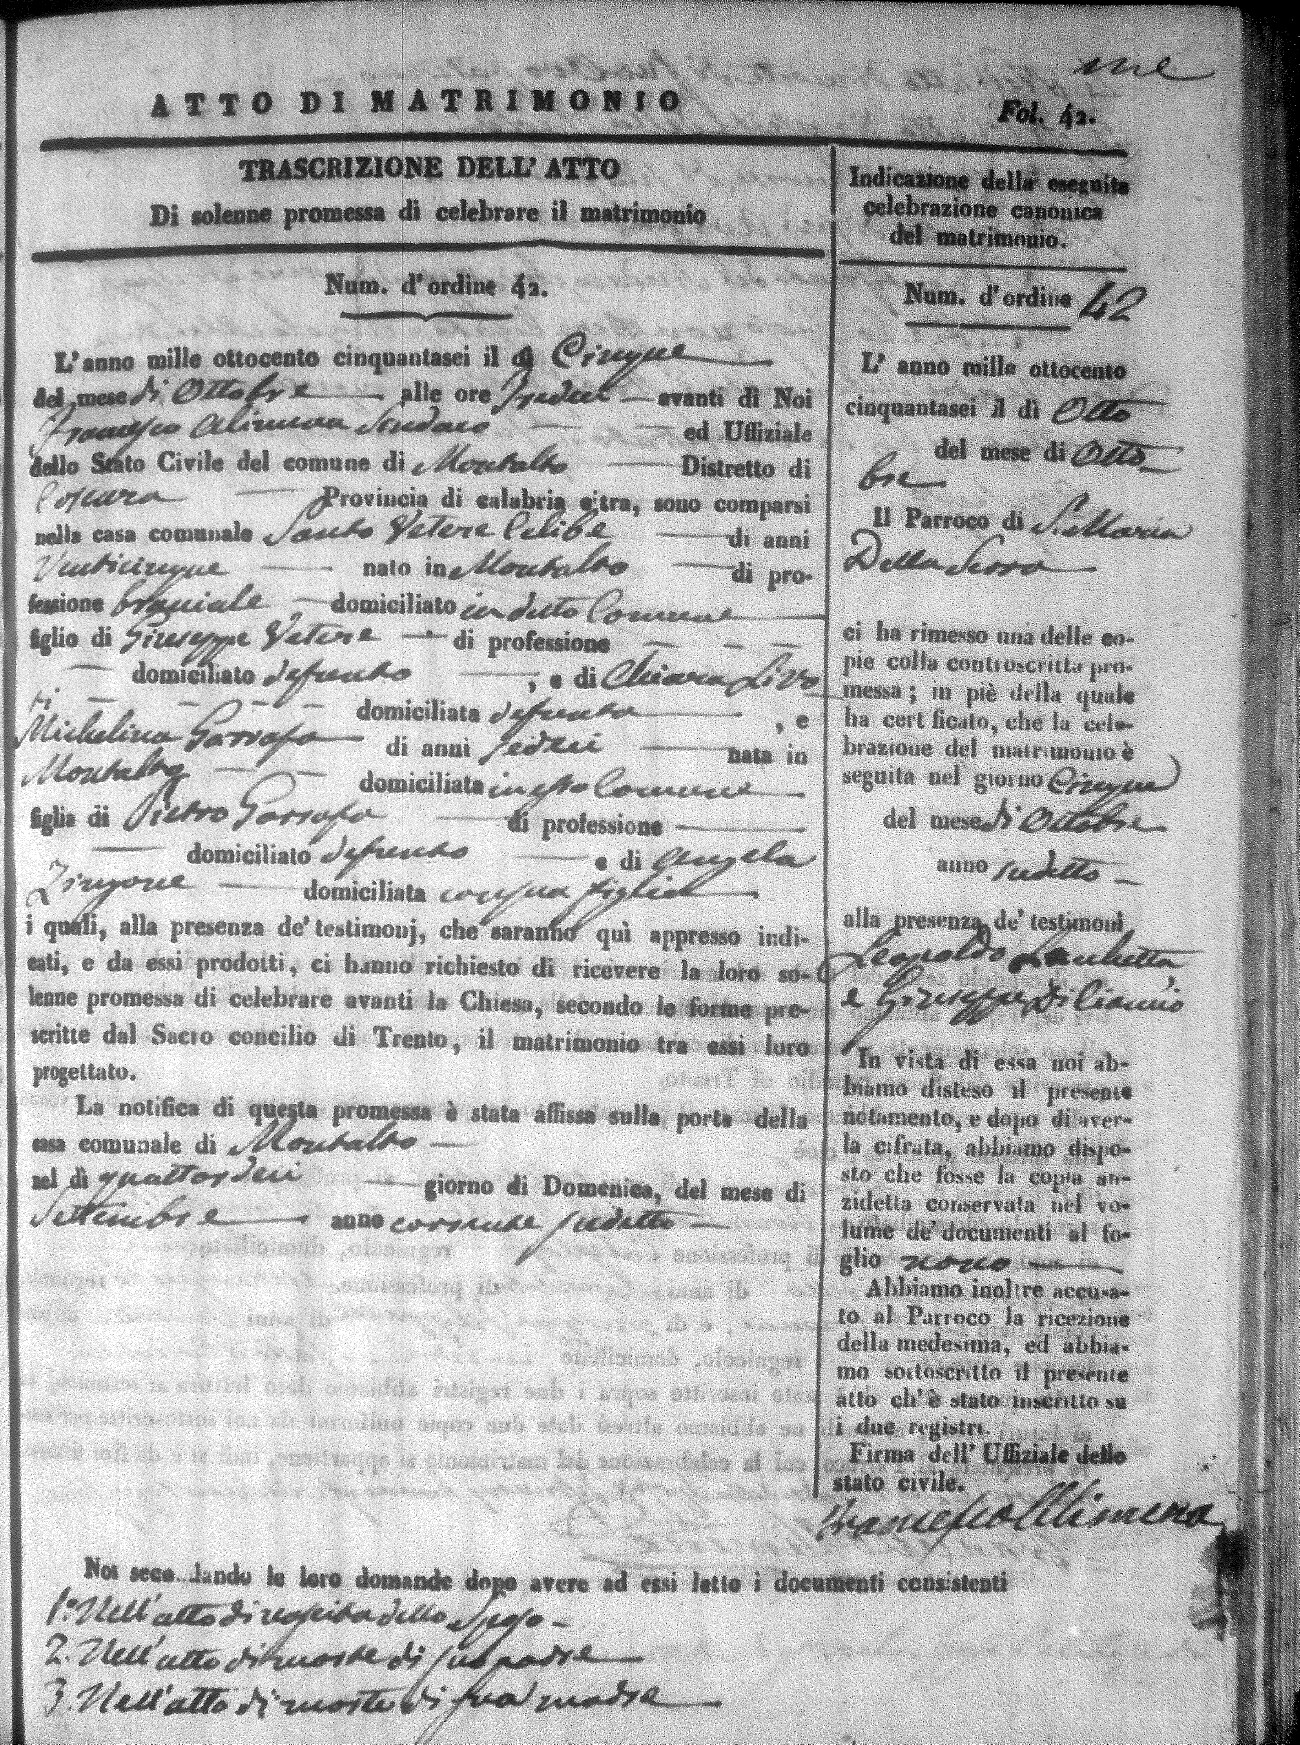 ATTO DI MATRIMONIO
Fol. 42.
TRASCRIZIONE DELL' ATTO
Di solenne promessa di celebrare il matrimonio
Num. d'ordine 42.
L'anno mille ottocento cinquantasei il dì Cinque
del mese di Ottobre alle ore Tredici avanti di Noi
Francesco Alimena Sindaco ed Uffiziale
dello Stato Civile del comune di Montalto Distretto di
Cosenza Provincia di calabria citra, sono comparsi
nella casa comunale Santo Vetere Celibe di anni
Venticinque nato in Montalto di pro-
fessione bracciale domiciliato in detto Comune
figlio di Giuseppe Vetere di professione
domiciliato defunto , e di Chiara Livo
ti domiciliata defunta , e
Michelina Garrafa di anni sedici nata in
Montalto domiciliata in esso Comune
figlia di Pietro Garrafa di professione
domiciliato defunto e di Angela
Zingone domiciliata con sua figlia
i quali, alla presenza de' testimonj, che saranno quì appresso indi-
cati, e da essi prodotti, ci hanno richiesto di ricevere la loro so-
lenne promessa di celebrare avanti la Chiesa, secondo le forme pre-
scritte dal Sacro concilio di Trento, il matrimonio tra essi loro
progettato.
La notifica di questa promessa è stata affissa sulla porta della
casa comunale di Montalto
nel dì quattordici giorno di Domenica, del mese di
Settembre anno corrente sudetto
Indicazione della eseguita
celebrazione canonica
del matrimonio.
Num. d'ordine 42
L' anno mille ottocento
cinquantasei il dì Otto
del mese di Otto
bre
Il Parroco di S. Maria
Della Serra
ci ha rimesso una delle co-
pie colla controscritta pro-
messa; in piè della quale
ha cert ficato, che la cele-
brazione del matrimonio è
seguita nel giorno Cinque
del mese di Ottobre
anno sudetto
alla presenza de' testimonj
Leopoldo
e Giuseppe Di Ciannio
In vista di essa noi ab-
biamo disteso il presente
notamento, e dopo di aver-
la cifrata, abbiamo dispo-
sto che fosse la copia an-
zidetta conservata nel vo-
lume de' documenti al fo-
glio nono
Abbiamo inoltre accusa-
to al Parroco la ricezione
della medesima, ed abbia-
mo sottoscritto il presente
atto ch'è stato inscritto su
i due registri.
Firma dell' Uffiziale dello
stato civile.
Francesco Alimena
Noi seco..dando le loro domande dopo avere ad essi letto i documenti consistenti
1.° Nell'atto di nascita dello Sposo
2. Nell'atto di morte di suo padre
3. Nell'atto di morte di sua madre